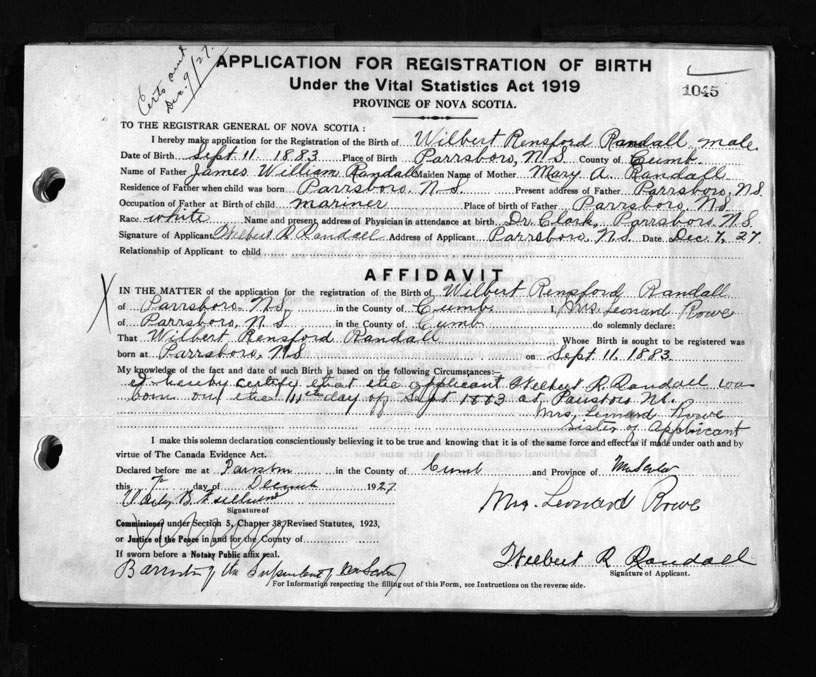 Certs sent
Dec. 9/27.
APPLICATION FOR REGISTRATION OF BIRTH
Under the Vital Statistics Act 1919
PROVINCE OF NOVA SCOTIA.
1045
TO THE REGISTRAR GENERAL OF NOVA SCOTIA :
I hereby make application for the Registration of the Birth of Wilbert Rensford Randall, male
Date of Birth Sept 11. 1883 Place of Birth Parrsboro, N.S. County of Cumb.
Name of Father James William Randall Maiden Name of Mother Mary A. Randall
Residence of Father when child was born Parrsboro. N.S. Present address of Father Parrsboro, N.S.
Occupation of Father at Birth of child mariner Place of birth of Father Parrsboro, N.S.
Race white Name and present address of Physician in attendance at birth Dr. Clark, Parrsboro N.S.
Signature of Applicant Wilbert R Randall Address of Applicant Parrsboro, N.S. Date Dec. 7, 27.
Relationship of Applicant to child
AFFIDAVIT
IN THE MATTER of the application for the registration of the Birth of Wilbert Rensford Randall
of Parrsboro. N.S. in the County of Cumb. I, Mrs. Leonard Rowe
of Parrsboro, N.S. in the County of Cumb do solemnly declare:
That Wilbert Rensford Randall Whose Birth is sought to be registered was
born at Parrsboro, N.S on Sept. 11. 1883.
My knowledge of the fact and date of such Birth is based on the following Circumstances:
I hereby certify that the applicant Wilbert R. Randall was
born on the 11th day of Sept 1883 at
Mrs. Leonard Rowe
Sister of Applicant
I make this solemn declaration conscientiously believing it to be true and knowing that it is of the same force and effect as if made under oath and by
virtue of The Canada Evidence Act.
Declared before me at in the County of Cumb and Province of
this 7th day of 1927
Mrs. Leonard Rowe
Signature of
Commissioner under Section 5, Chapter 38, Revised Statutes, 1923,
or Justice of the Peace in and for the County of
If sworn before a Notary Public affix seal.
Wilbert R Randall
Signature of Applicant.
Barrister of the
For Information respecting the filling out of this Form, see Instructions on the reverse side.